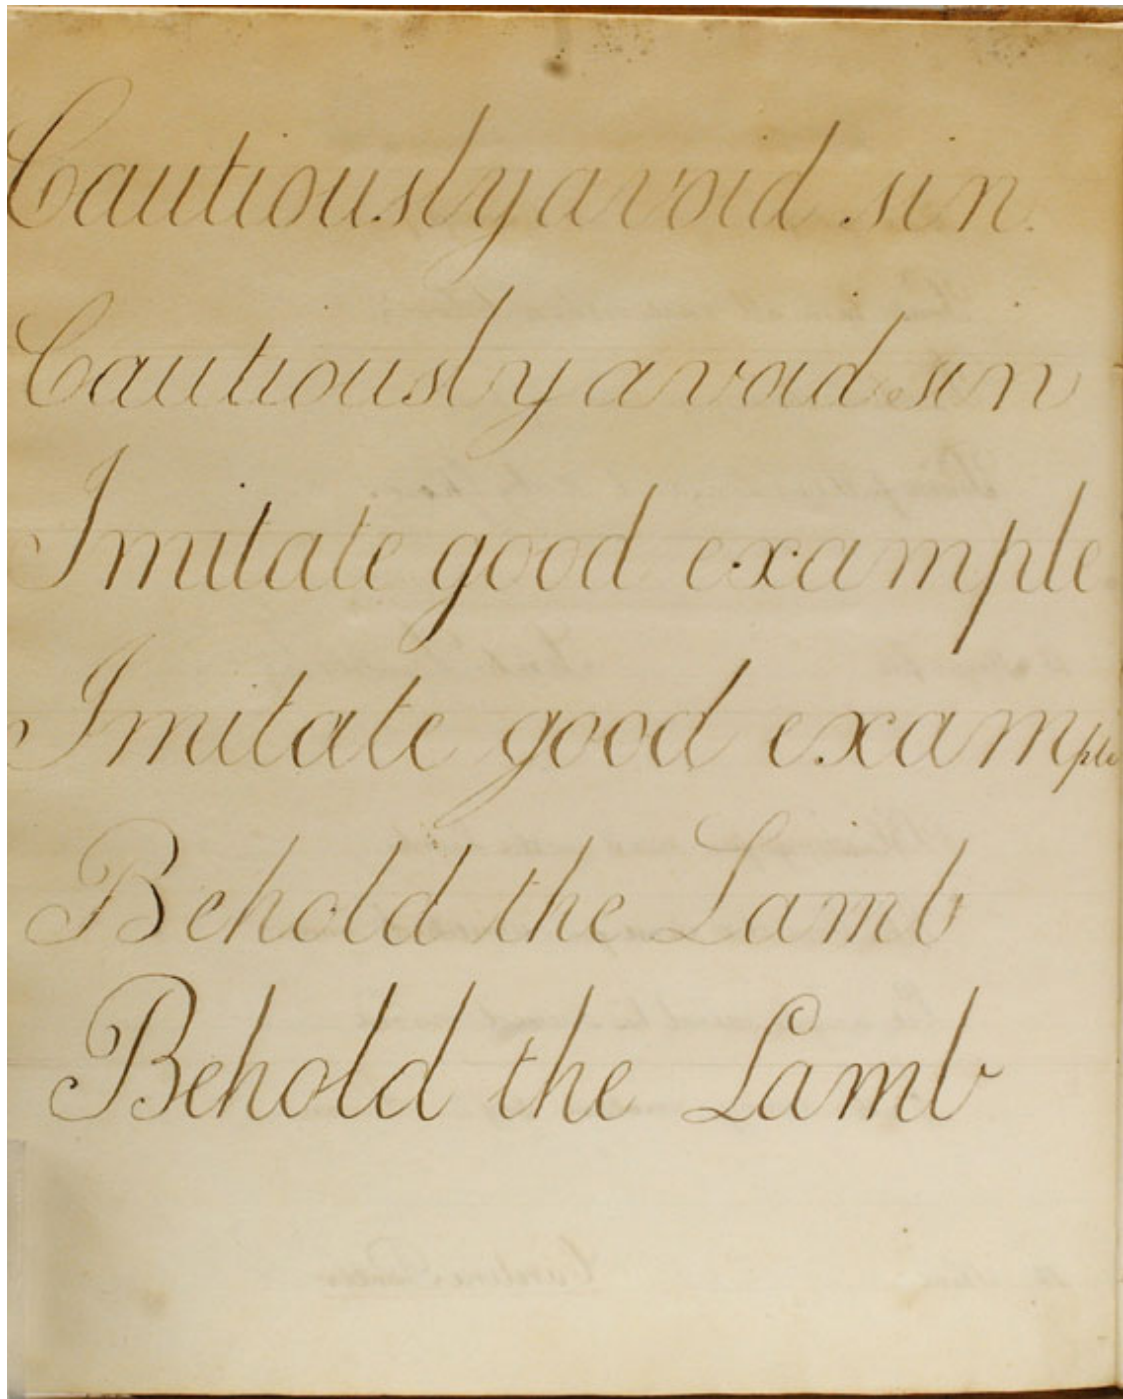 Cautiously avoid sin.
Cautiously avoid sin
Imitate good example
Imitate good example
Behold the Lamb
Behold the Lamb